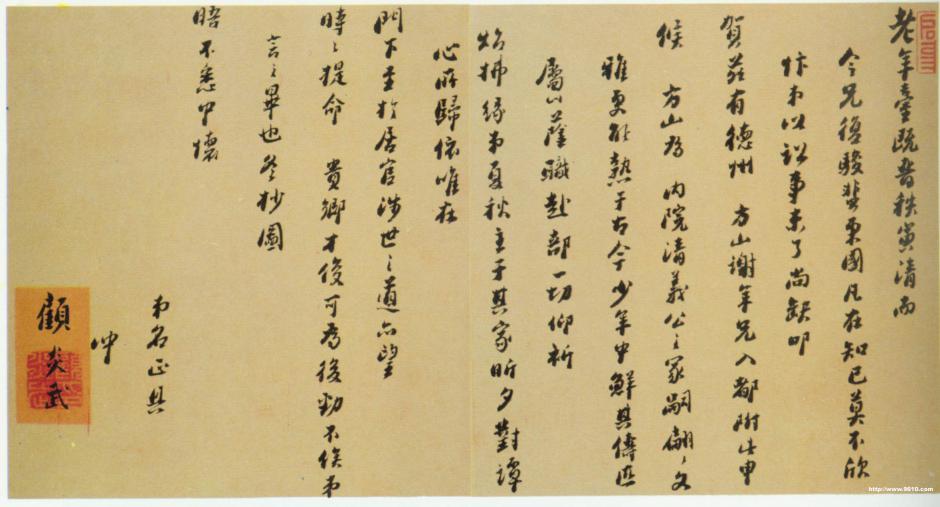 老年臺既晉秩黃清而
今兄復駿蜚東國凡在知己莫不欣
忭弟以訟事未了尚缺叩
賀茲有德州 方山謝年兄入都附此申
候 方山為 內院清義公之冢嗣翩翩文
雅更能熟于古今少年中鮮其儔匹
屬以蔭職赴部一切仰祈
炤拂緣弟夏秋主于其家昕夕對譚
心所歸依唯在
門下至於居官涉世之道亦望
時時提命 貴鄉才俊可為後勁不俟弟
言之畢也冬杪圖
晤不悉中懷
弟名正具
冲
顧炎武
http://www.9610.com